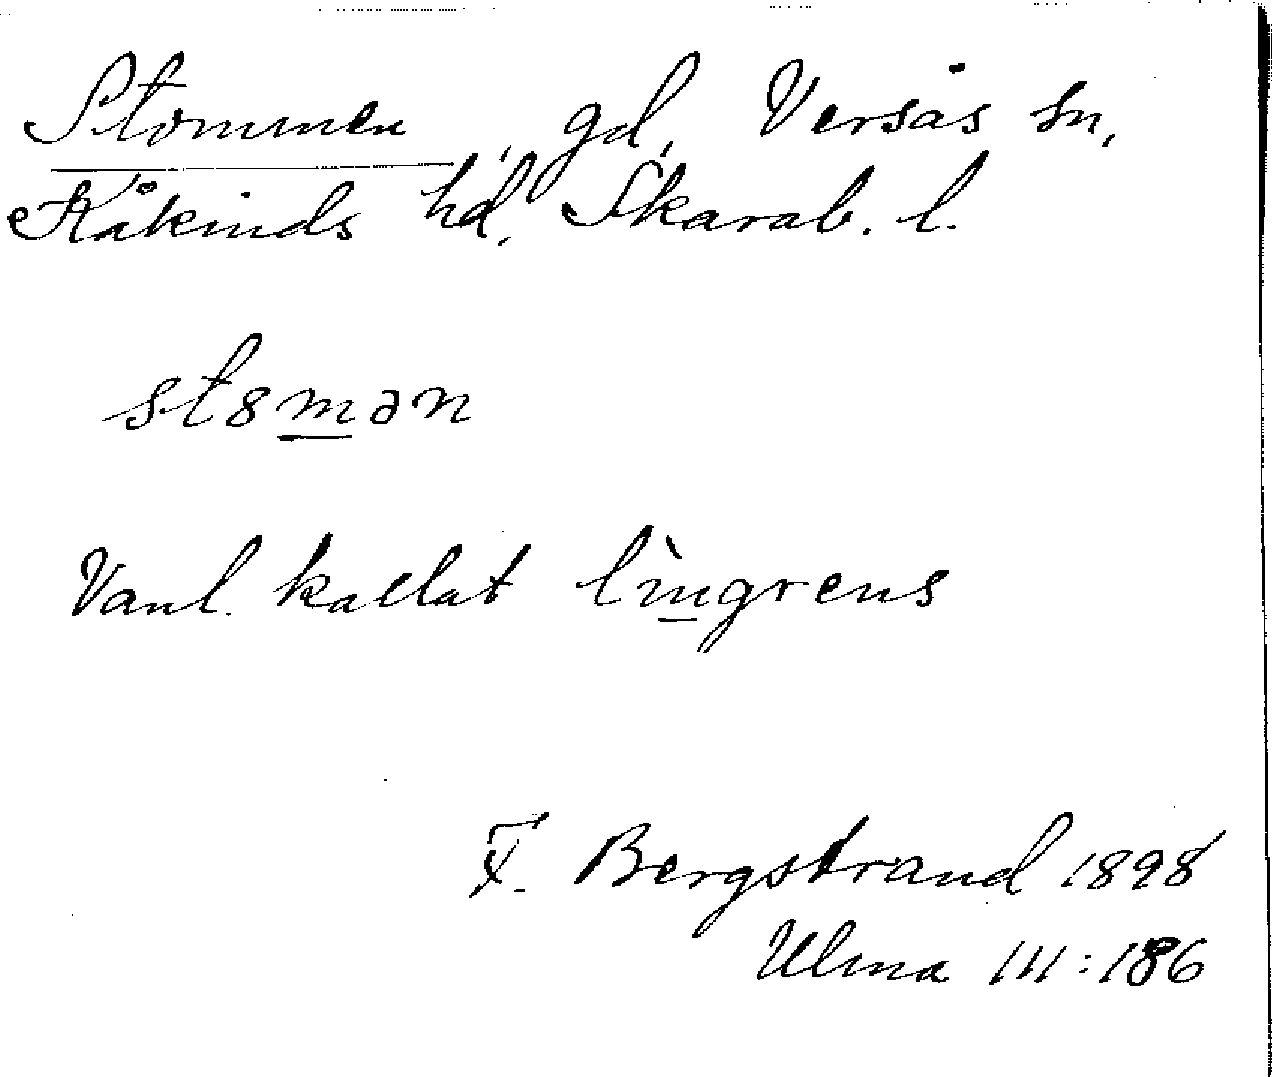 Stommen, gd, Versås sn,
Kåkinds hd, Skarab. l.
st8mən
Vanl. kallat lìngrens
F. Bergstrand 1898
Ulma III:186